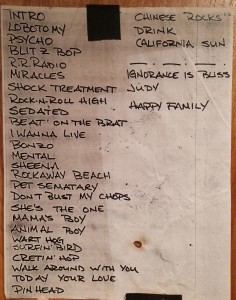 INTRO
LOBOTOMY
PSYCHO
BLITZ BOP
R.R. RADIO
MIRACLES
SHOCK TREATMENT
ROCK-N-ROLL HIGH
SEDATED
BEAT' ON THE BRAT
I WANNA LIVE
BONZO
MENTAL
SHEENA
ROCKAWAY BEACH
PET SEMATARY
DON'T BUST MY CHOPS
SHE'S THE ONE
MAMA'S BOY
ANIMAL BOY
WART HOG
SURFIN' BIRD
CRETIN' HOP
WALK AROUND WITH YOU
TODAY YOUR LOVE
PINHEAD
CHINESE ROCKS"
DRINK
CALIFORNIA SUN
— . — . — . — .
IGNORANCE IS BLISS
JUDY
HAPPY FAMILY